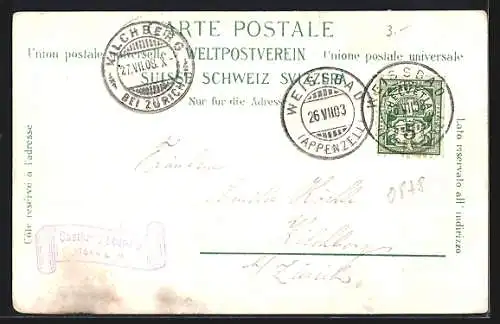 CARTE POSTALE
3.-
Union postale universelle WELTPOSTVEREIN Unione postale universale
SUISSE SCHWEIZ SVIZZERA
Nur für die Adresse
KILCHBERG
27.VII.03.
BEI ZÜRICH
WEISSBAD
26 VII 03
(APPENZELL)
WEISSBAD
HELVETIA
5
Côté réservé à l'adresse
Lato riservato all' indirizzo
Fräulein
Kilchberg
b/ Zürich.
0878